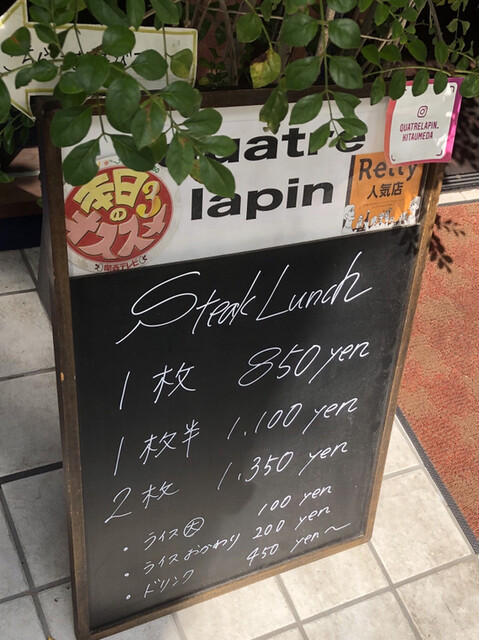 Quatre
lapin
本日の
オススメ3
関西テレビ
Retty
人気店
QUATRELAPIN.
KITAUMEDA
Steak Lunch
1枚 850 yen
1枚半 1,100 yen
2枚 1,350 yen
・ライス大 100 yen
・ライスおかわり 200 yen
・ドリンク 450 yen〜